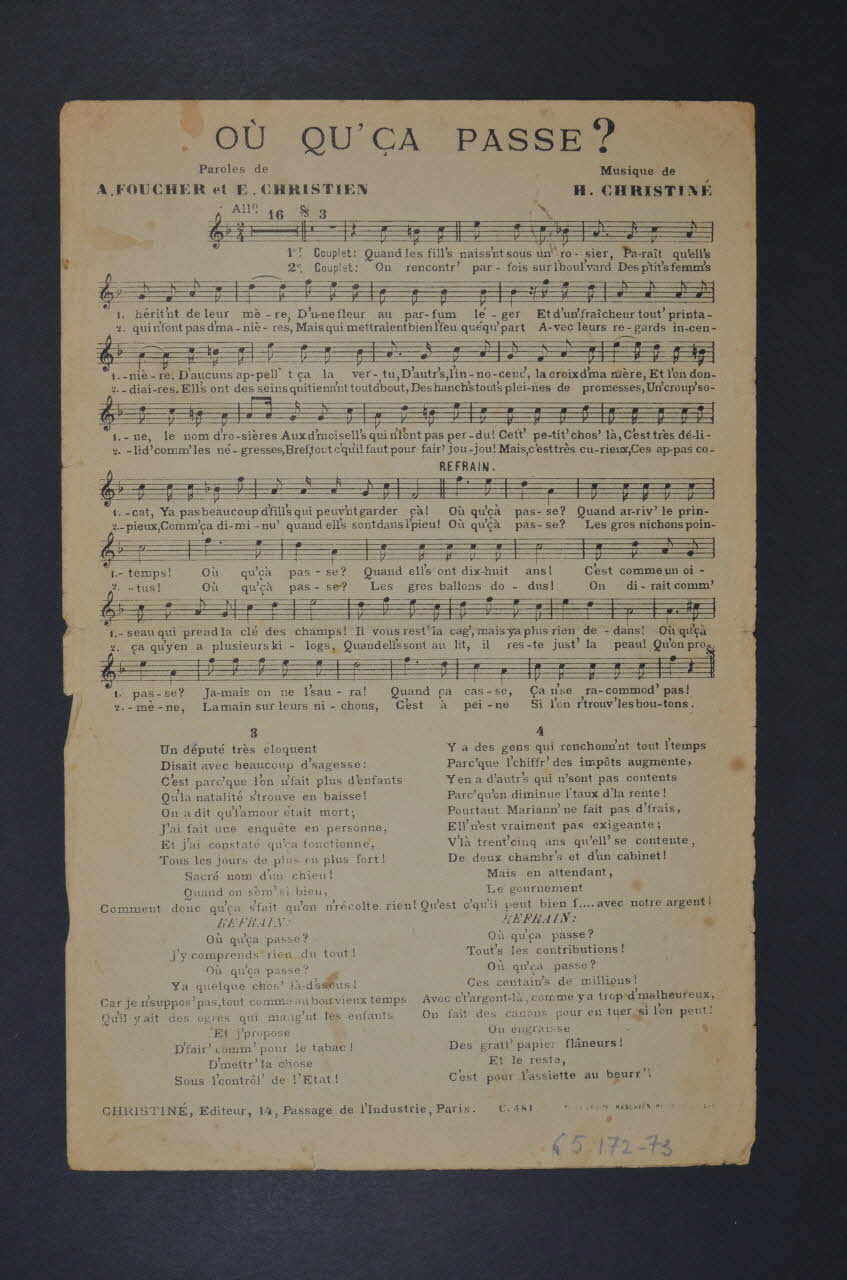 OÙ QU'ÇA PASSE?
Paroles de
A. FOUCHER et E. CHRISTIEN
Musique de
H. CHRISTINÉ
All°. 16 3
1er. Couplet: Quand les fill's naiss'nt sous un ro - sier, Pa-raît qu'ell's
2e. Couplet: On rencontr' par - fois sur l'boul'vard Des p'tit's femm's
1. hérit'nt de leur mè - re, D'u-ne fleur au par-fum lé - ger Et d'un' fraîcheur tout' printa-
2. qui n'font pas d'ma-niè - res, Mais qui mettraient bien l'feu qué'qu' part A-vec leurs re-gards in-cen-
1. - niè - re. D'aucuns ap-pell' t ça la ver-tu, D'autr's, l'in-no-cenc', la croix d'ma mère, Et l'on don-
2. - diai-res. Ell's ont des seins qui tienn'nt tout d'bout, Des hanch's tout's plei-nes de promesses, Un' croup' so-
1. - ne, le nom d'ro-sières Aux d'moisell's qui n'l'ont pas per-du! Cett' pe-tit' chos' là, C'est très dé-li-
2. - lid' comm' les né-gresses, Bref, tout c'qu'il faut pour fair' jou-jou! Mais, c'est très cu-rieux, Ces ap-pas co-
REFRAIN.
1. - cat, Ya pas beaucoup d'fill's qui peuv'nt garder çà! Où qu'çà pas-se? Quand ar-riv' le prin-
2. - pieux, Comm' ça di-mi-nu' quand ell's sont dans l'pieu! Où qu'çà pas-se? Les gros nichons poin-
1. - temps! Où qu'çà pas-se? Quand ell's ont dix-huit ans! C'est comme un oi-
2. - tus! Où qu'çà pas-se? Les gros ballons do-dus! On di-rait comm'
1. - seau qui prend la clé des champs! Il vous rest' la cag', mais ya plus rien de-dans! Où qu'çà
2. ça qu'y en a plusieurs ki-logs, Quand ell's sont au lit, il res-te just' la peau! Qu'on pro-
1. pas-se? Ja-mais on ne l'sau-ra! Quand ça cas-se, Ça n'se ra-commod' pas!
2. - mè-ne, La main sur leurs ni-chons, C'est à pei-ne Si l'on r'trouv' les bou-tons.
3
Un député très eloquent
Disait avec beaucoup d'sagesse:
C'est parc'que l'on n'fait plus d'enfants
Qu'la natalité s'trouve en baisse!
On a dit qu'l'amour était mort;
J'ai fait une enquête en personne,
Et j'ai constaté qu'ça fonctionne,
Tous les jours de plus en plus fort!
Sacré nom d'un chien!
Quand on sèm' si bien,
Comment donc qu'ça s'fait qu'on n'récolte rien!
REFRAIN:
Où qu'ça passe?
J'y comprends rien du tout!
Où qu'ça passe?
Ya quelque chos' là-d'ssous!
Car je n'suppos' pas, tout comme au bon vieux temps
Qu'il y ait des ogres qui mang'nt les enfants
Et j'propose
D'fair' comm' pour le tabac!
D'mettr' la chose
Sous l'contrôl' de l'Etat!
4
Y a des gens qui ronchonn'nt tout l'temps
Parc'que l'chiffr' des impôts augmente,
Y en a d'autr's qui n'sont pas contents
Parc'qu'on diminue l'taux d'la rente!
Pourtant Mariann' ne fait pas d'frais,
Ell' n'est vraiment pas exigeante;
V'là trent'cinq ans qu'ell' se contente,
De deux chambr's et d'un cabinet!
Mais en attendant,
Le gournement
Qu'est c'qu'il peut bien f.... avec notre argent!
REFRAIN:
Où qu'ça passe?
Tout's les contributions!
Où qu'ça passe?
Ces centain's de millions!
Avec c't'argent-là, comme y a trop d'malheureux,
On fait des canons pour en tuer si l'on peut!
On engraisse
Des gratt' papier flâneurs!
Et le reste,
C'est pour l'assiette au beurr'!
CHRISTINÉ, Editeur, 14, Passage de l'Industrie, Paris. C. 481
65.172-73